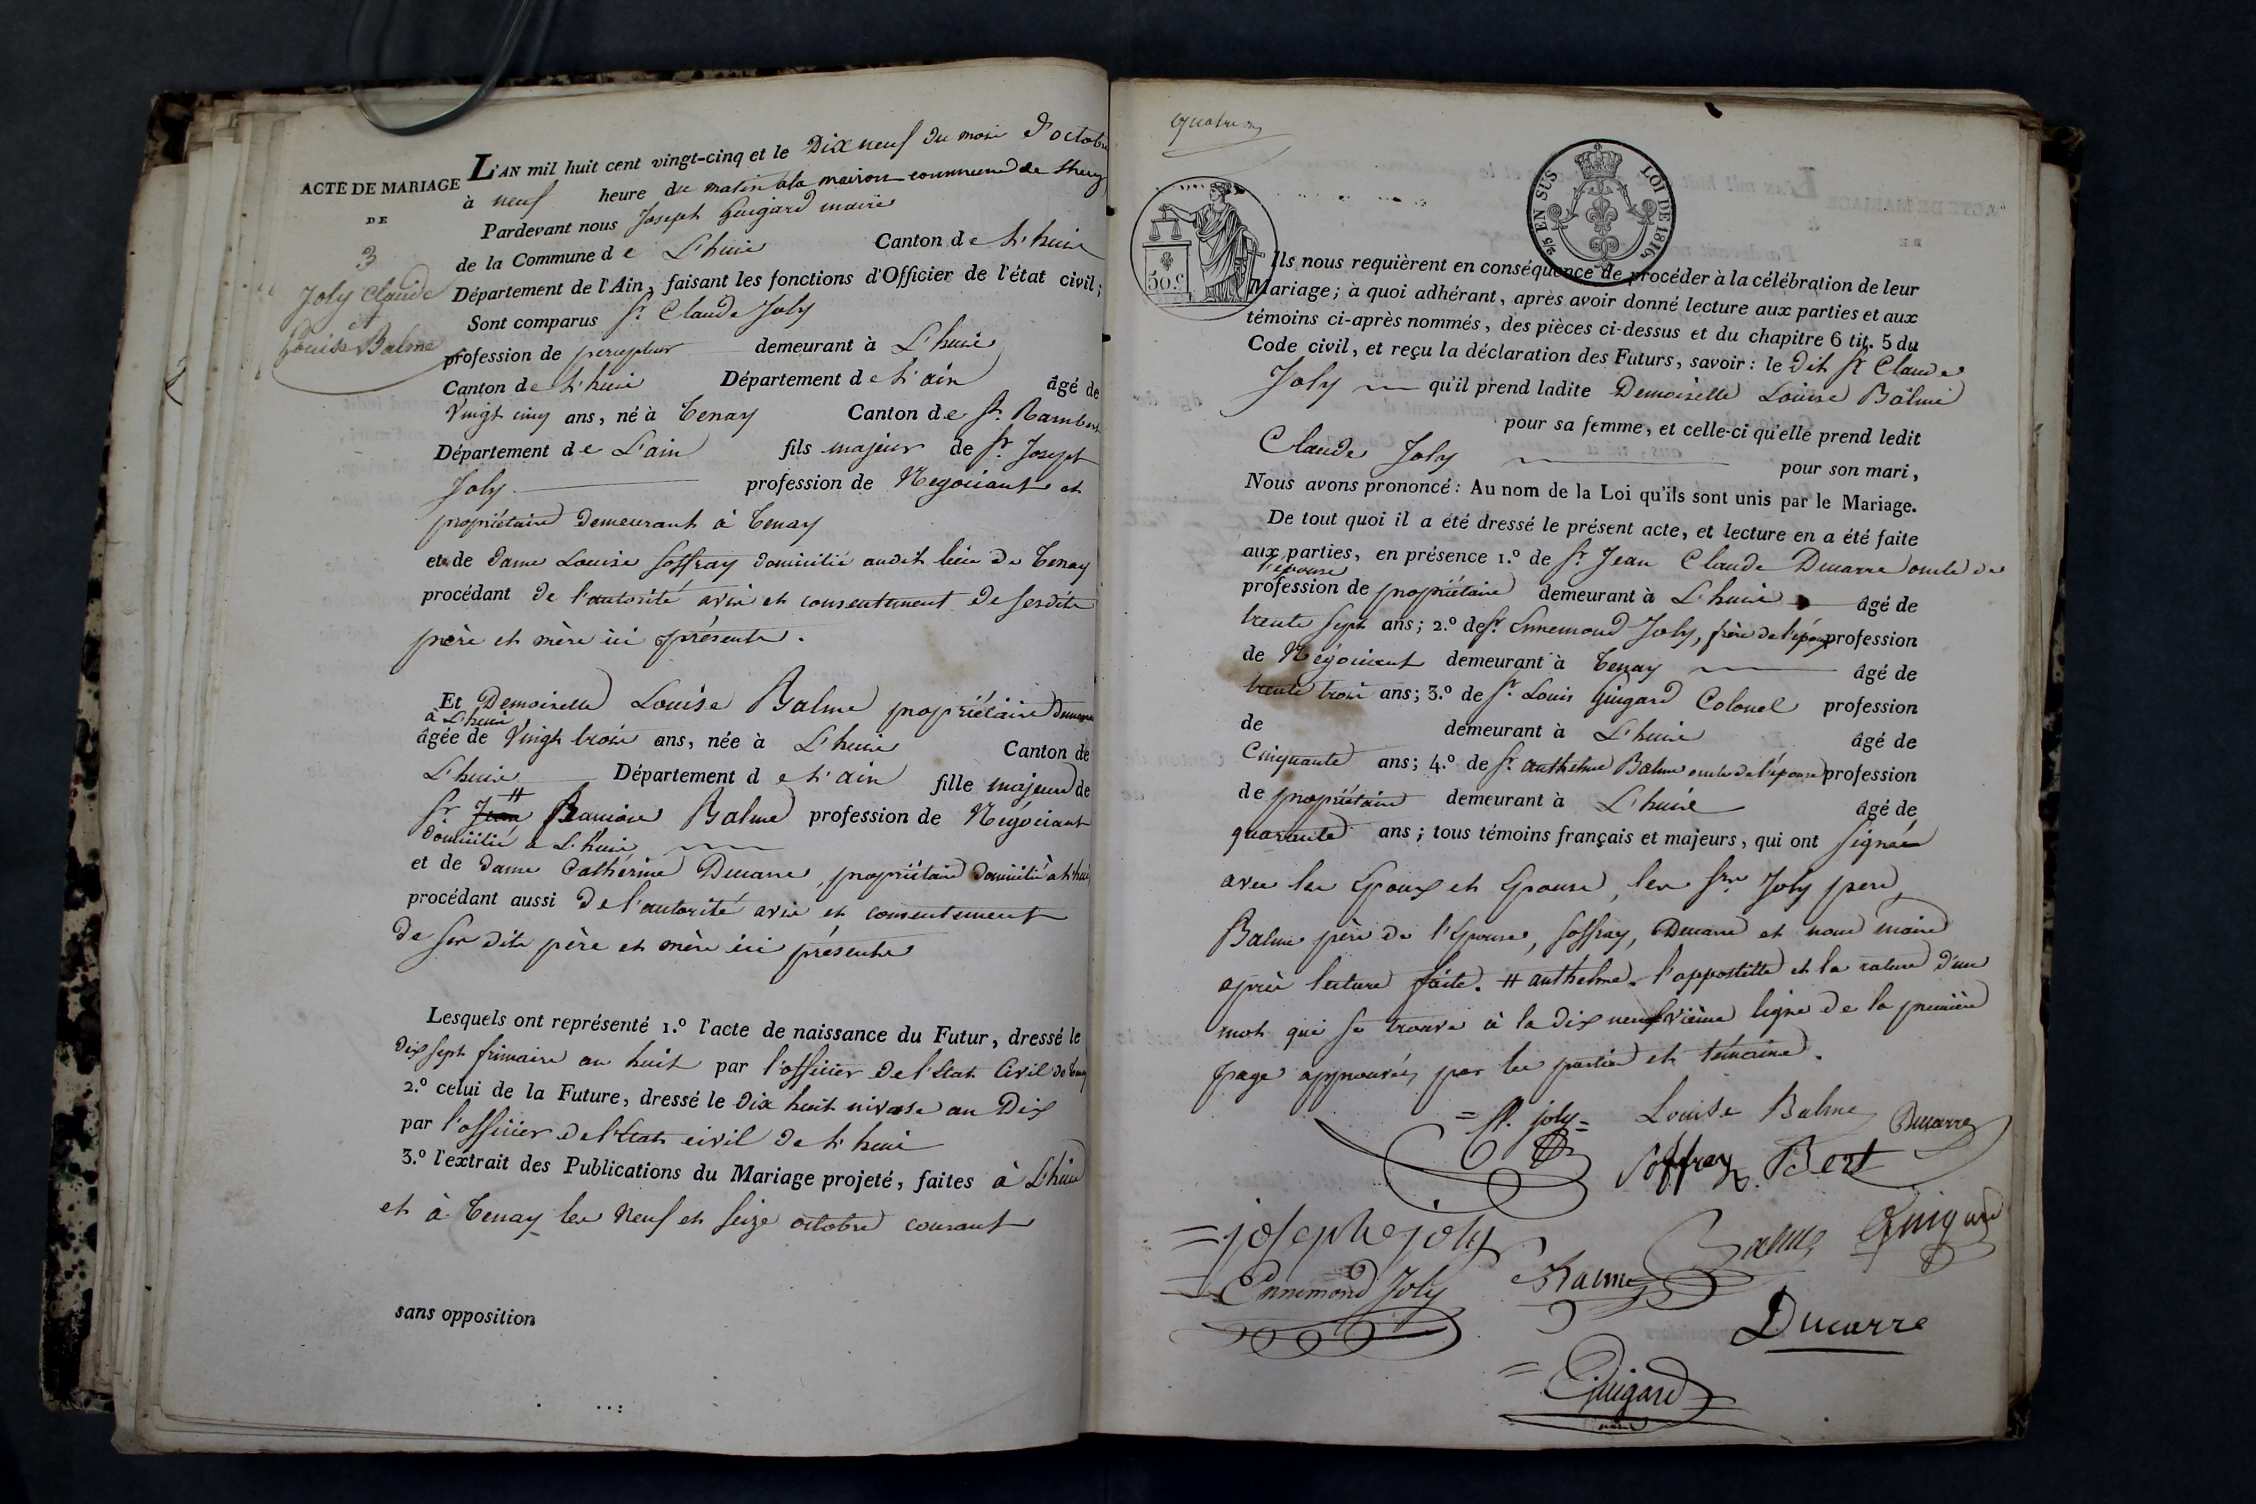 ACTE DE MARIAGE
DE
3
Joly Claude
et
Louise Balme
L'AN mil huit cent vingt-cinq et le Dix neuf du mois d'octobre
à neuf heure du matin à la maison commune de Lhuis
Pardevant nous Joseph Guigard maire
de la Commune de L'huis Canton de L'huis
Département de l'Ain, faisant les fonctions d'Officier de l'état civil;
Sont comparus Sr Claude Joly
profession de percepteur demeurant à L'huis
Canton de L'huis Département de L'ain âgé de
Vingt cinq ans, né à Tenay Canton de St. Rambert
Département de L'ain fils majeur de Sr. Joseph
Joly profession de Négociant et
propriétaire demeurant à Tenay
et de dame Louise Soffray domicilié audit lieu de Tenay
procédant de l'autorité avis et consentement de ses dits
père et mère ici présents.
Et Demoiselle Louise Balme propriétaire demeurant
à L'huis
âgée de Vingt trois ans, née à L'huis Canton de
L'huis Département de L'ain fille majeure de
Sr Jean # Balme profession de Négociant
domicilié à L'huis
et de dame Cathérine Ducarre, propriétaire domicilié à L'huis
procédant aussi de l'autorité avis et consentement
de ses dits père et mère ici présents
Lesquels ont représenté 1.º l'acte de naissance du Futur, dressé le
dix sept frimaire an huit par l'officier de l'Etat Civil de Tenay
2.º celui de la Future, dressé le dix huit nivose an Dix
par l'officier de l'Etat civil de L'huis
3.º l'extrait des Publications du Mariage projeté, faites à L'huis
et à Tenay les Neuf et seize octobre courant
sans opposition
50.c
2/5 EN SUS LOI DE 1816
Ils nous requièrent en conséquence de procéder à la célébration de leur
Mariage; à quoi adhérant, après avoir donné lecture aux parties et aux
témoins ci-après nommés, des pièces ci-dessus et du chapitre 6 tit. 5 du
Code civil, et reçu la déclaration des Futurs, savoir: le dit Sr Claude
Joly qu'il prend ladite Demoiselle Louise Balme
pour sa femme, et celle-ci qu'elle prend ledit
Claude Joly pour son mari,
Nous avons prononcé: Au nom de la Loi qu'ils sont unis par le Mariage.
De tout quoi il a été dressé le présent acte, et lecture en a été faite
aux parties, en présence 1.º de Sr. Jean Claude Ducarre oncle de
l'épouse
profession de propriétaire demeurant à L'huis âgé de
trente sept ans; 2.º de Sr Ennemond Joly, frère de l'époux profession
de Négociant demeurant à Tenay âgé de
trente trois ans; 3.º de Sr. Louis Guigard Colonel profession
de demeurant à L'huis âgé de
Cinquante ans; 4.º de Sr. anthelme Balme oncle de l'épouse profession
de propriétaire demeurant à L'huis âgé de
quarante ans; tous témoins français et majeurs, qui ont signés
avec les Epoux et Epouse, les Srs Joly père
Balme père de l'Epouse, Soffray, Ducarre et nous maire
après lecture faite. # anthelme. l'appostille et la rature d'un
mot qui se trouve à la dix neufvième ligne de la première
page approuvés par les parties et témoins.
= Cl. joly = Louise Balme Ducarre
Soffray Bert
= josephe joly Balme Guigard
Ennemond Joly Balme
Ducarre
= Guigard
maire